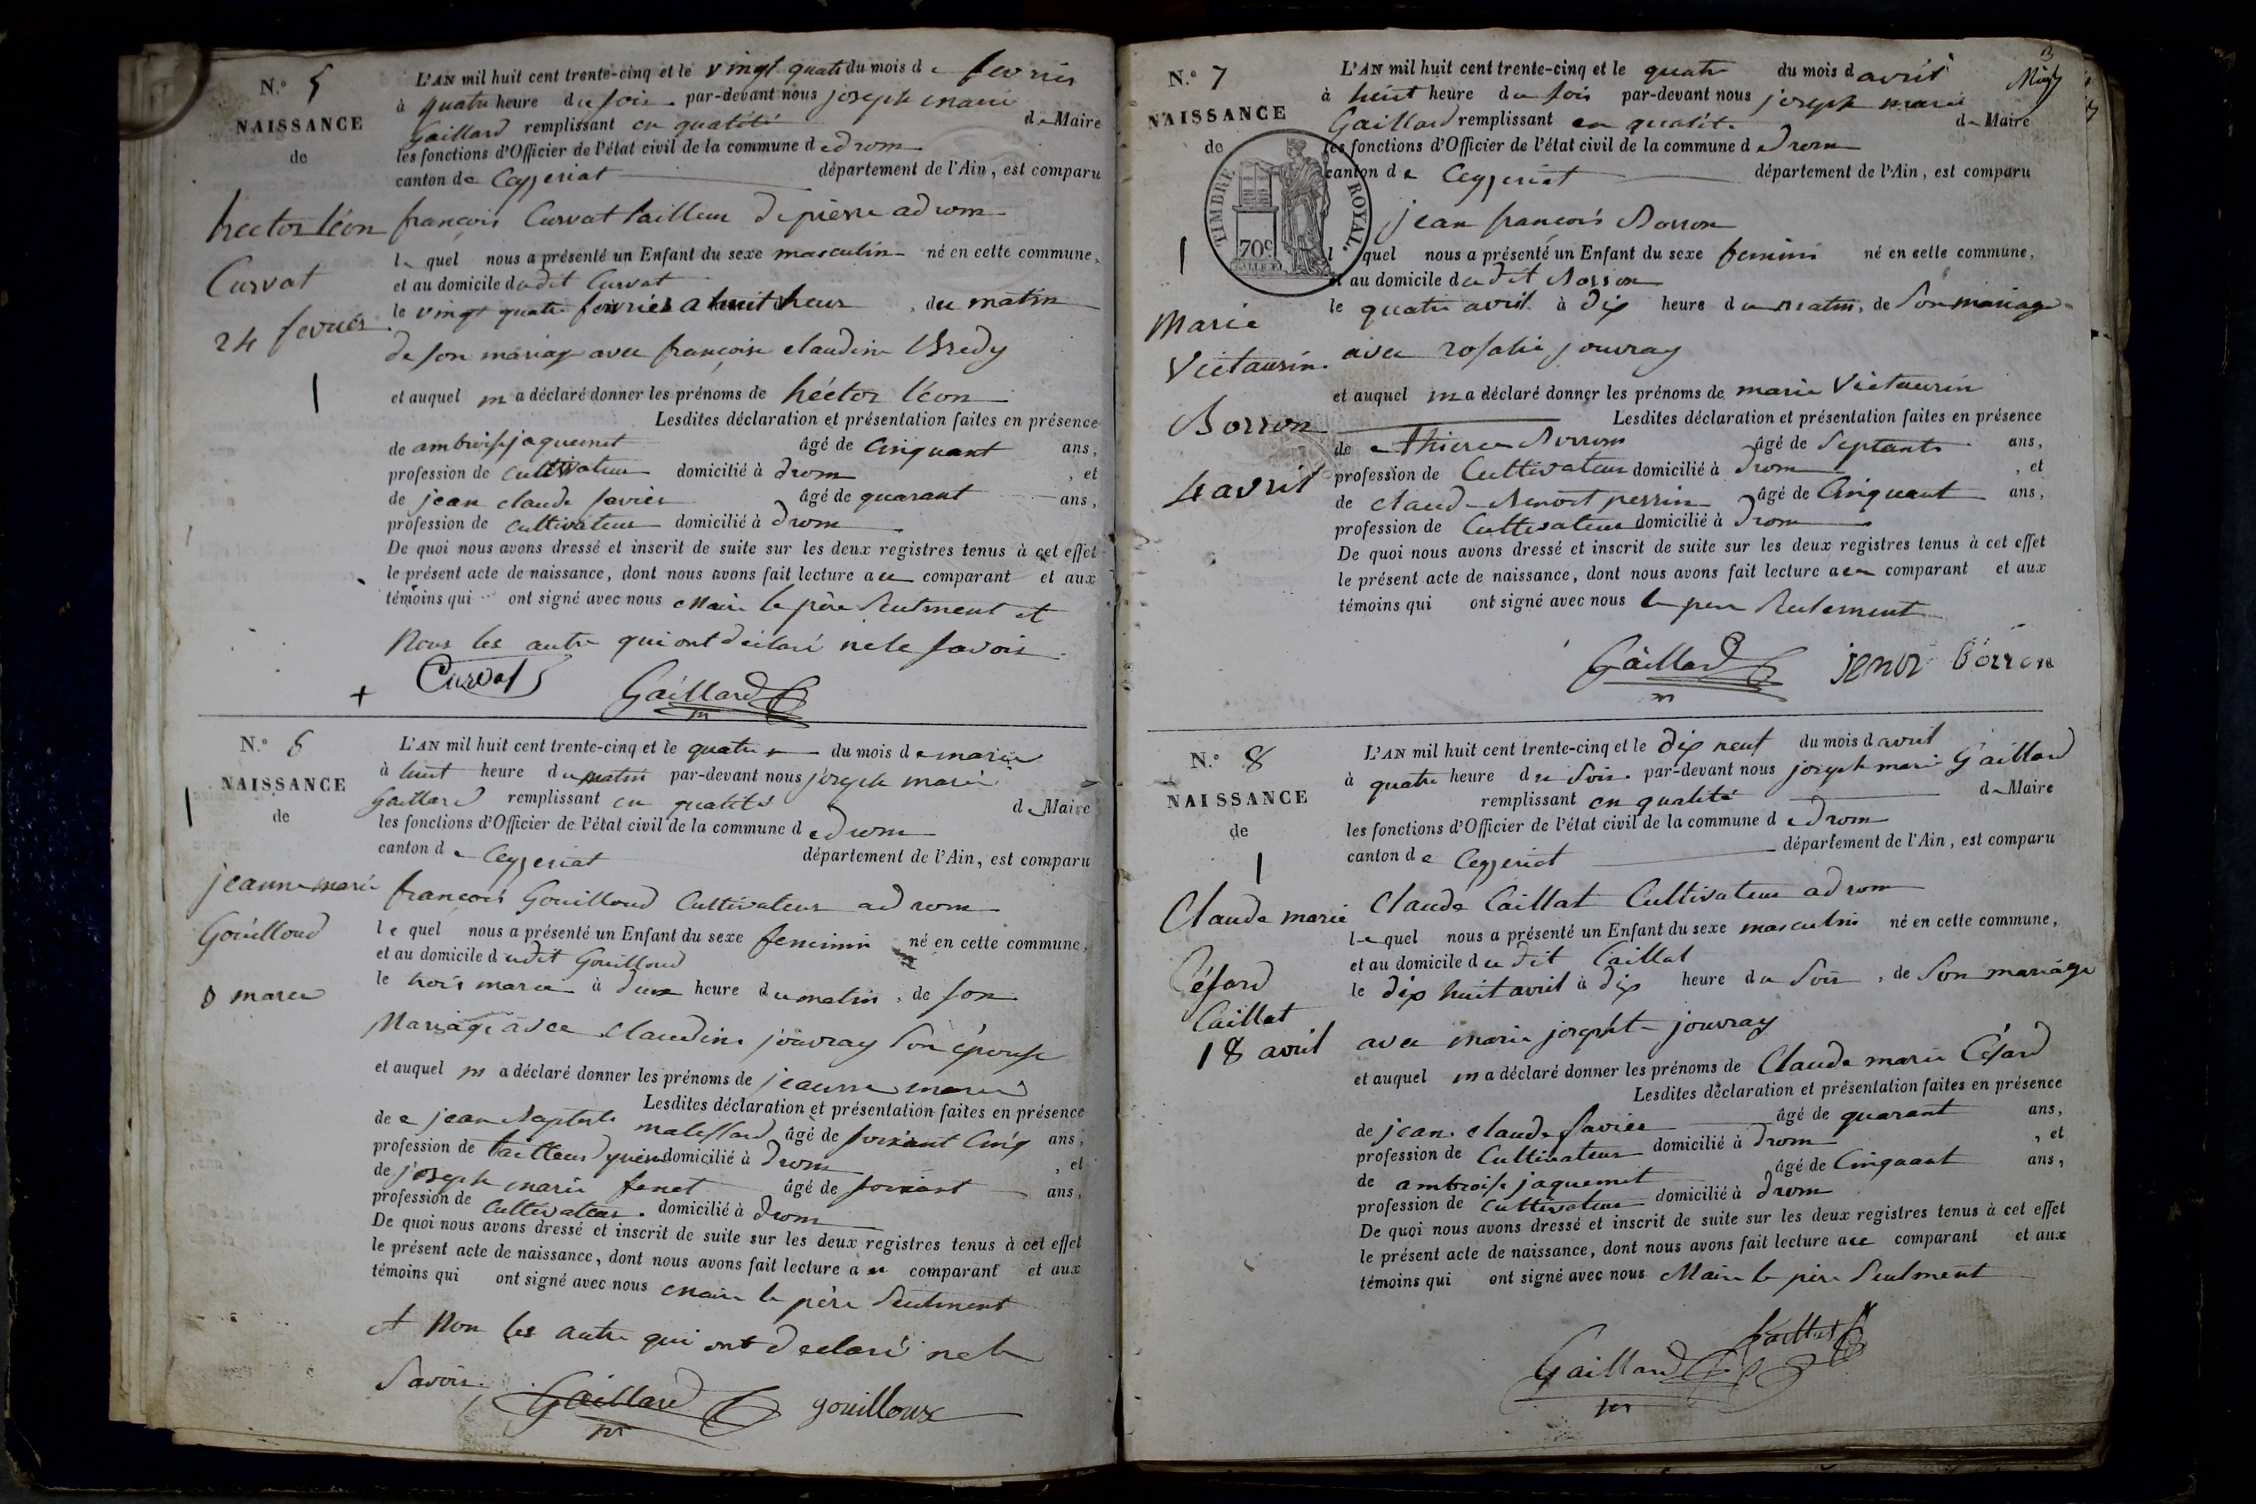 N.° 5
NAISSANCE
de
hector léon
Curvat
24 fevrier
L'AN mil huit cent trente-cinq et le vingt quatre du mois de fevrier
à quatre heure du soir par-devant nous joseph marie
Gaillard remplissant en qualité de Maire
les fonctions d'Officier de l'état civil de la commune de drom
canton de Ceyzeriat département de l'Ain, est comparu
françois Curvat tailleur de pierre a drom
le quel nous a présenté un Enfant du sexe masculin né en cette commune,
et au domicile dudit Curvat
le vingt quatre fevrier a huit heur , du matin
de son mariage avec françoise claudine Bredy
et auquel in a déclaré donner les prénoms de héctor léon
Lesdites déclaration et présentation faites en présence
de ambroise jaquemet âgé de Cinquant ans,
profession de cultivateur domicilié à drom , et
de jean claude savier âgé de quarant ans,
profession de cultivateur domicilié à drom
De quoi nous avons dressé et inscrit de suite sur les deux registres tenus à cet effet
le présent acte de naissance, dont nous avons fait lecture a ce comparant et aux
témoins qui ont signé avec nous Maire le père seulment et
Nous les autre qui ont déclaré ne le savoir
Curvat
Gaillard
m
N.° 6
NAISSANCE
de
jeanne marie
Gouilloud
L'AN mil huit cent trente-cinq et le quatre du mois de
à huit heure du matin par-devant nous joseph marie
Gaillard remplissant en qualité de Maire
les fonctions d'Officier de l'état civil de la commune de drom
canton de Ceyzeriat département de l'Ain, est comparu
françois Gouilloud Cultivateur a drom
le quel nous a présenté un Enfant du sexe feminin né en cette commune,
et au domicile dudit Gouilloud
le trois à deux heure du matin , de son
Mariage avec claudine jouvray son épouse
et auquel in a déclaré donner les prénoms de jeanne marie
Lesdites déclaration et présentation faites en présence
de jean Baptiste âgé de soixant Cinq ans,
profession de tailleur domicilié à drom , et
de joseph marie âgé de soixant ans,
profession de Cultivateur domicilié à drom
De quoi nous avons dressé et inscrit de suite sur les deux registres tenus à cet effet
le présent acte de naissance, dont nous avons fait lecture a ce comparant et aux
témoins qui ont signé avec nous Maire le père seulment
et Non les autre qui ont declaré ne le
savoir
Gaillard gouilloux
m
3
N.° 7
NAISSANCE
de
TIMBRE ROYAL.
70c
Marie
Victaurin
Borron
4 avril
L'AN mil huit cent trente-cinq et le quatre du mois d avril
à huit heure du soir par-devant nous joseph marie
Gaillard remplissant en qualité de Maire
les fonctions d'Officier de l'état civil de la commune de drom
canton de Ceyzeriat département de l'Ain, est comparu
jean françois Borron
l quel nous a présenté un Enfant du sexe feminin né en cette commune,
et au domicile dudit Borron
le quatre avril à dix heure du matin, de son mariage
avec rosalie jouvray
et auquel in a déclaré donner les prénoms de marie Victaurin
Lesdites déclaration et présentation faites en présence
de Borron âgé de Septante ans,
profession de Cultivateur domicilié à drom , et
de claude Benoit perrin âgé de Cinquant ans,
profession de Cultivateur domicilié à drom
De quoi nous avons dressé et inscrit de suite sur les deux registres tenus à cet effet
le présent acte de naissance, dont nous avons fait lecture a ce comparant et aux
témoins qui ont signé avec nous le pere Seulement
Gaillard Borron
m
N.° 8
NAISSANCE
de
Claude marie
Césard
Caillat
18 avril
L'AN mil huit cent trente-cinq et le dix neuf du mois d avril
à quatre heure du soir par-devant nous joseph marie Gaillard
remplissant en qualité de Maire
les fonctions d'Officier de l'état civil de la commune de drom
canton de Ceyzeriat département de l'Ain, est comparu
Claude Caillat Cultivateur a drom
le quel nous a présenté un Enfant du sexe masculin né en cette commune,
et au domicile du dit Caillat
le dix huit avril à dix heure du soir , de son mariage
avec marie josephte jouvray
et auquel in a déclaré donner les prénoms de Claude marie Césard
Lesdites déclaration et présentation faites en présence
de jean claude savier âgé de quarant ans,
profession de Cultivateur domicilié à drom , et
de ambroise jaquemet âgé de Cinquant ans,
profession de Cultivateur domicilié à drom
De quoi nous avons dressé et inscrit de suite sur les deux registres tenus à cet effet
le présent acte de naissance, dont nous avons fait lecture a ce comparant et aux
témoins qui ont signé avec nous Maire le père Seulment
Gaillard